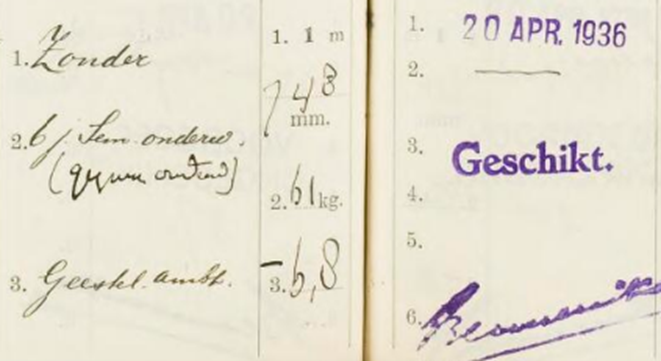 1. Zonder
2. 6 j. Sem. onderw.
(gymn onderw)
3. Geestel. ambt.
1. 1 m
748
mm.
2. 61 kg.
3. 6,8
1. 20 APR. 1936
2. —
3. Geschikt.
4.
5.
6.